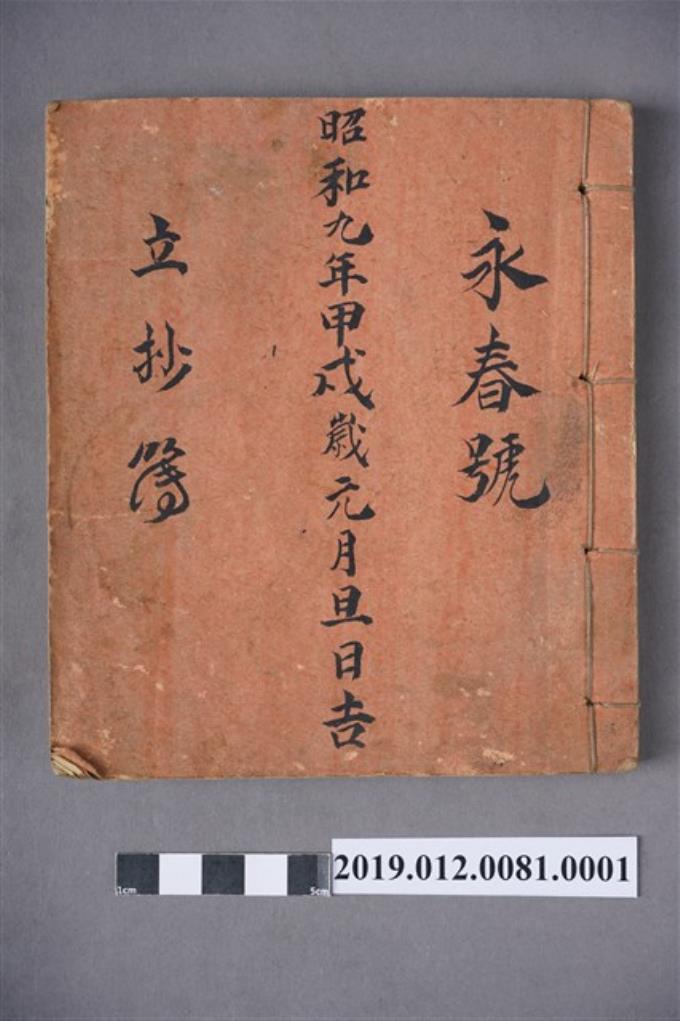 永春號
昭和九年甲戌歲元月旦日吉
立抄簿
1cm
5cm
2019.012.0081.0001